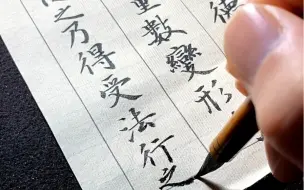 德
數變形
之乃得受法行之